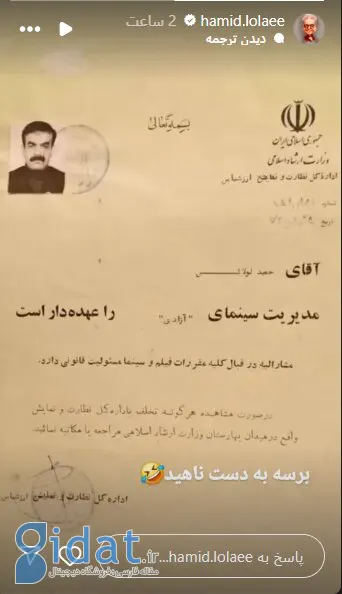 hamid.lolaee 2 ساعت
دیدن ترجمه
بسمه تعالی
جمهوری اسلامی ایران
وزارت ارشاد اسلامی
اداره کل نظارت و نمایش ارزشیابی
تاریخ
آقای حمید لولائی
مدیریت سینمای "آزادی" را عهده‌دار است
مشارالیه در قبال کلیه مقررات فیلم و سینما مسئولیت قانونی دارد.
درصورت مشاهده هرگونه تخلف بااداره کل نظارت و نمایش
واقع درمیدان بهارستان وزارت ارشاد اسلامی مراجعه یا مکاتبه نمائید.
برسه به دست ناهید🤣
اداره کل نظارت و نمایش ارزشیابی
پاسخ به hamid.lolaee...
gidat.ir
مقاله فارسی و فروشگاه دیجیتال